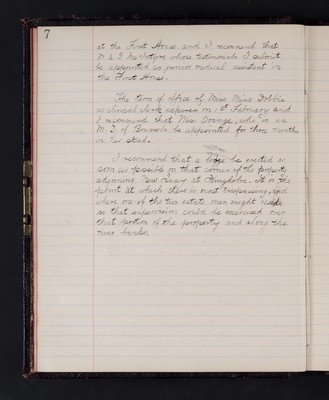 7
at the First House, and I recommend that
Dr. L. F. McIntyre whose testimonials I submit,
be appointed as junior medical assistant in
the First House.
The term of office of Miss Mina Dobbie
as clinical clerk expires on 3rd February and
I recommend that Miss Orange, who is an
M.D. of Brussels be appointed for three months
in her stead.
I recommend that a lodge be erected as
soon as possible in that corner of the property
adjoining New Quay at Kingholm. It is the
point at which there is most trespassing, and
where one of the two estate men might reside
so that supervision could be exercised over
that portion of the property and along the
river banks.